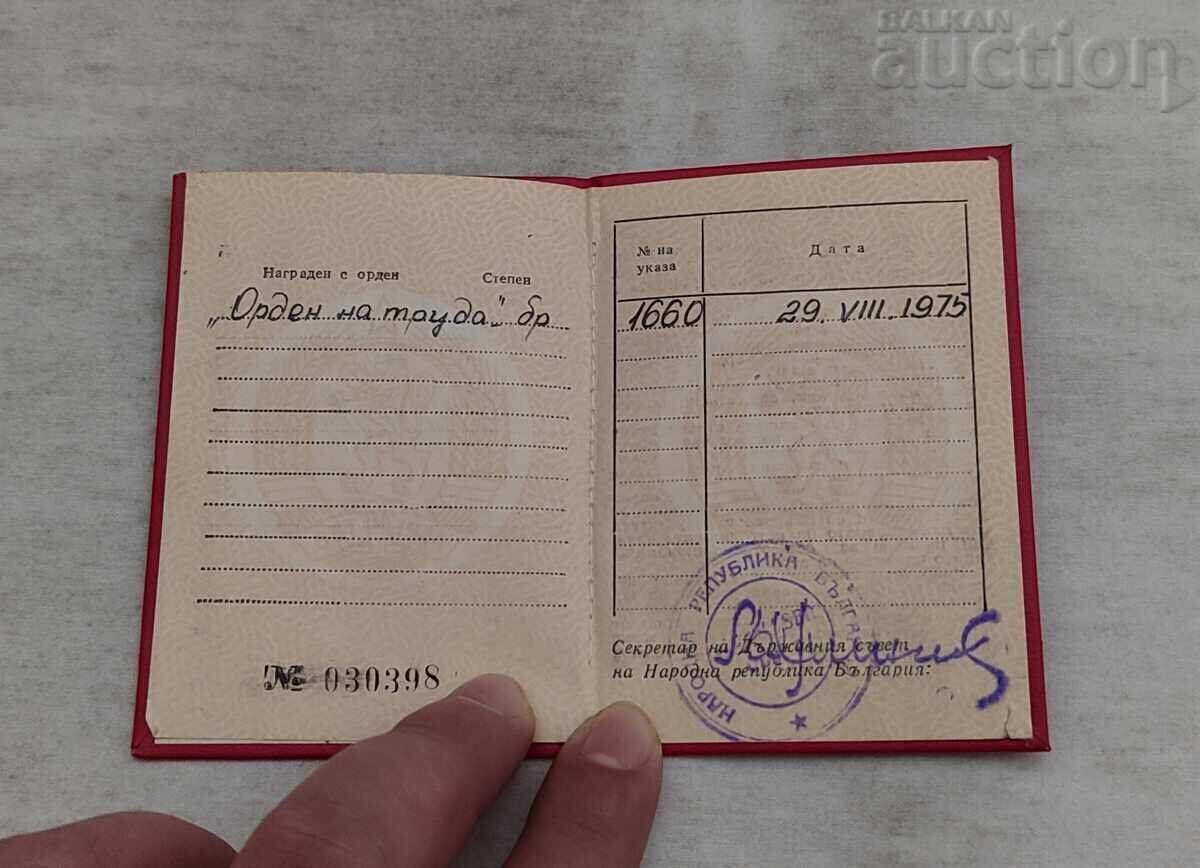 BALKAN
auction
Награден с орден Степен
„Орден на труда" бр
№ 030398
№ на указа Дата
1660 29. VIII. 1975
НАРОДНА РЕПУБЛИКА БЪЛГАРИЯ
Секретар на Държавния съвет
на Народна република България: